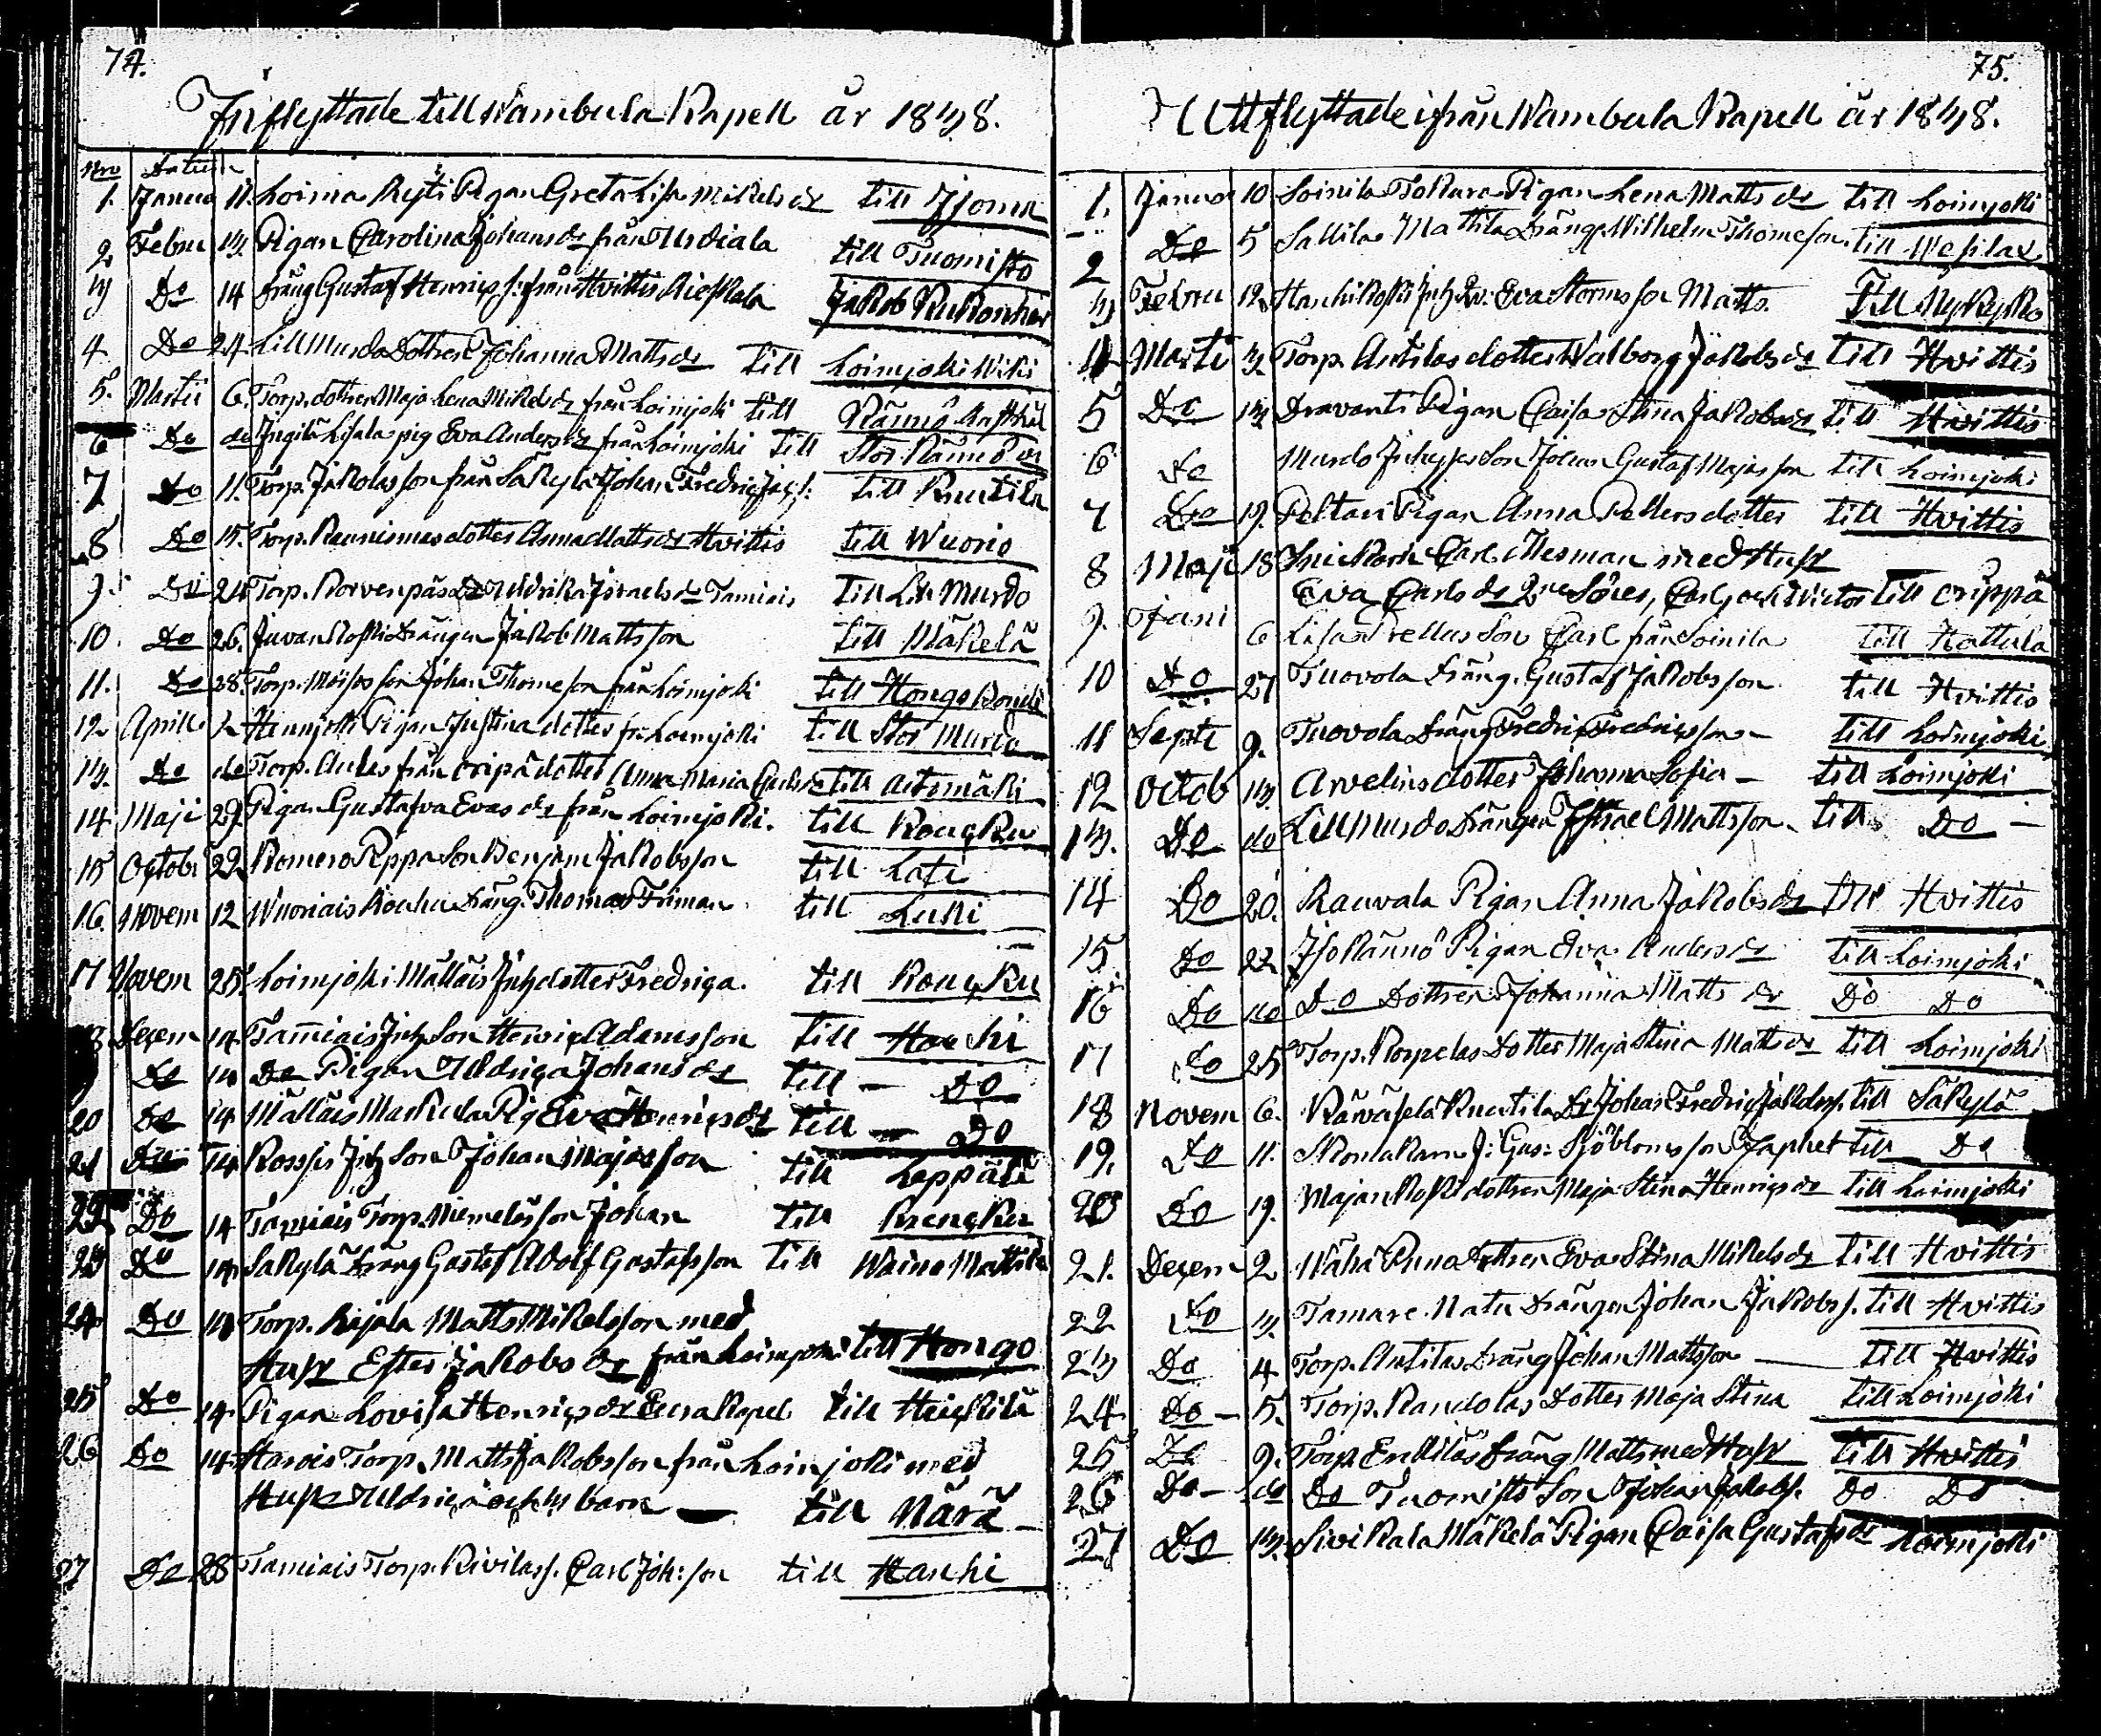 74.
Inflyttade till Wambula Kapell år 1838.
Nro Datum
1. Janua 11. Loima Kyti Pigan Greta Lisa Mikels dr till Isoma
2. Febru 13. Pigan Carolina Johans dr från Urdiala till Tuomisto
3 Do 14 Dräng Gustaf Henrics s: från Hvittis Jakob
4 Do 24. Lill Murdo Dottren Johanna Matts dr till Loimjoki Wiki
5. Martii 6. Torp. dottren Maja Lena Mikels dr från Loimjoki till Rännö
6 Do do Lisala pig Eva Anders dr från Loimjoki till Stor Rännö
7 Do 11. Torp. Jakolas son från Säkylä Johan Fredric till Knutila
8 Do 15. Torp. dotter Anna Matts dr Hvittis till Wuorio
9. Do 24 Torp. Korvenpääs Dr Uldrika Israels dr Tamiais till Lill Murdo
10. Do 26. Juvankoski Drängen Jakob Matts son till Mäkelä
11. Do 28. Torp. Moisos son Johan Thome son från Loimjoki till Hongo
12. Aprill 2 Pigan Justina dotter fr: Loimjoki till Stor Murdo
13. Do do Torp. från Oripä dotter Anna Maria till Aitomäki
14. Maji 29. Pigan Gustafva Evas dr från Loimjoki. till Rongku
15 Octobr 22. Romero Peppa Son Benjam Jakobsson till Lati
16. Novem 12 Wuoriais Dräng. Thomas Friman till Luki
17 Novem 25. Loimjoki Mälläis Inh dotter Fredriga. till Rongku
18 Decem 14. Tamiais Inh Son Henric Adamsson till Hanhi
Do 14 Do Pigan Uldrica Johans dr till — Do
20 Do 14 Mälläis Markula Pig Eva Henrics dr till — Do
21 Do 14 Rossis Inh Son Johan Majas son till Leppälä
22 Do 14 Tamiais Torp. Niemeläs son Johan till
23 Do 14. Säkylä Dräng Gustaf Adolf Gustafsson till Waino Mattila
24 Do 14 Torp. Lijala Matts Mikelsson med
Hustr Ester Jakobs dr från Loimjoki till Hongo
25 Do 14 Pigan Lovisa Henrics dr Eura Kapel till Heickilä
26 Do 14 Harois Torp. Matts Jakobsson från Loimjoki med
Hustr Uldrica och 3 barn — till Närä
27 Do 28 Tamiais Torp. Kivilas s. Carl Joh: son till Hanhi
75.
Utflyttade ifrån Wambula Kapell år 1838.
1. Januar 10 Soinila Tokura Pigan Lena Matts dr till Loimjoki
2 Do 5 Sallila Mattila Dräng. Wilhelm Thomeson till Wesilax
3 Febru 12. Hanhikoski Inh Eva Storms son Matts. Till Nykyrko
4 Marti 3. Torp. Antilas dotter Walborg Jakobs dr till Hvittis
5 Do 13 Dravanti Pigan Caisa Stina Jakobs dr till Hvittis
6 Do Murdo Son Johan Gustaf Majasson till Loimjoki
7 Do 19. Peltari Pigan Anna Petters dotter till Hvittis
8 Maji 18 Snickarn Carl Nesman med Hustr
Eva Carls dr 2ne Söner, Carl, och Victor till Orippä
9. Juni 6 Lisa Prellus Son Carl från Soinila till Hattula
10 Do 27 Tuovola Dräng. Gustaf Jakobsson till Hvittis
11 Septe 9. Tuovola Dräng Fredric Fredricsson — till Loimjoki
12 Octob 13. Arvelins dotter Johanna Sofia — till Loimjoki
13. Do do Lill Murdo Drängen Israel Mattsson — till Do —
14 Do 20. Rauvala Pigan Anna Jakobs dr till Hvittis
15 Do 22 Iso Rännö Pigan Eva Anders dr till Loimjoki
16 Do do Do Dottren Johanna Matts dr Do Do
17 Do 25 Torp. Korpelas Dotter Maja Stina Matts dr till Loimjoki
18 Novem 6. Räwäselä Knutila Dr Johan Fredric Jakobss. till Säkylä
19. Do 11. J: Gus: Sjöbloms son Japhet till Do
20 Do 19. Majankoski dottren Maja Stina Henrics dr till Loimjoki
21. Decem 2 Wäha Dottren Eva Stina Mikels dr till Hvittis
22 Do 3. Tamare Natu Drängen Johan Jakobs s. till Hvittis
23 Do 4 Torp. Antilas Dräng Johan Mattsson — till Hvittis
24 Do — 5. Torp. Randolas Dotter Maja Stina till Loimjoki
25 Do 9. Torp. Erkkiläs Dräng Matts med Hustr till Hvittis
26 Do — do Do Tuomisto Son Johan Jakobs. Do Do
27 Do 13. Sivikala Mäkelä Pigan Caisa Gustafs dr Loimjoki